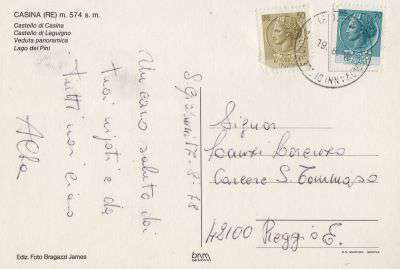 CASINA (RE) m. 574 s. m.
Castello di Casina
Castello di Leguigno
Veduta panoramica
Lago dei Pini
17-8-78
Un caro saluto dai
tuoi nipoti e da
tutti noi ciao
Alba
Signor
Lorenzo
S. Tommaso
42100 Reggio E.
Ediz. Foto Bragazzi James